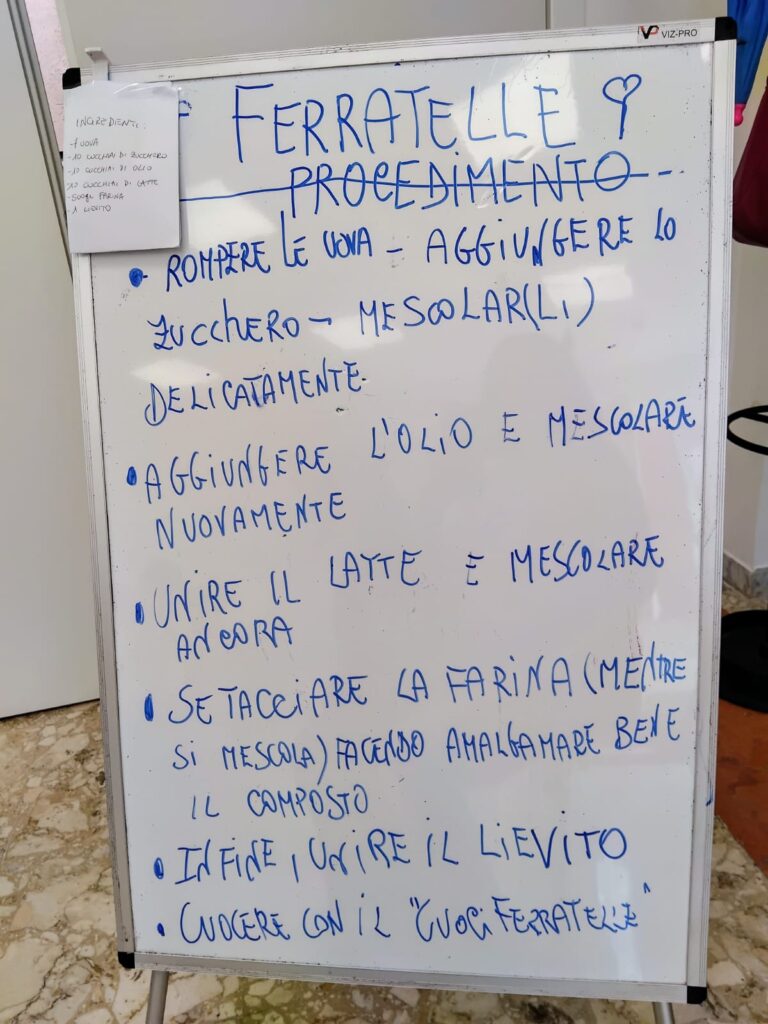 VP VIZ-PRO
FERRATELLE
PROCEDIMENTO
INGREDIENTI:
UOVA
-10 CUCCHIAI DI ZUCCHERO
-10 CUCCHIAI DI OLIO
-10 CUCCHIAI DI LATTE
FARINA
1 LIEVITO
• ROMPERE LE UOVA - AGGIUNGERE LO
ZUCCHERO - MESCOLAR(LI)
DELICATAMENTE
• AGGIUNGERE L'OLIO E MESCOLARE
NUOVAMENTE
• UNIRE IL LATTE E MESCOLARE
ANCORA
• SETACCIARE LA FARINA (MENTRE
SI MESCOLA) FACENDO AMALGAMARE BENE
IL COMPOSTO
• INFINE, UNIRE IL LIEVITO
• CUOCERE CON IL "CUOCIFERRATELLE"